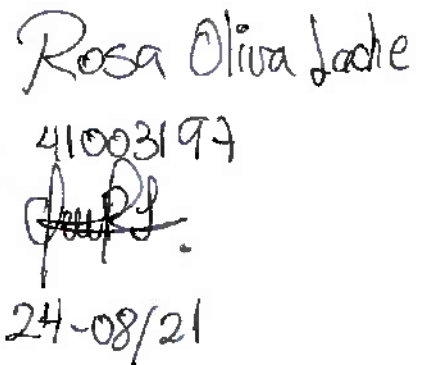 Rosa Oliva Lache
41003197
24-08/21